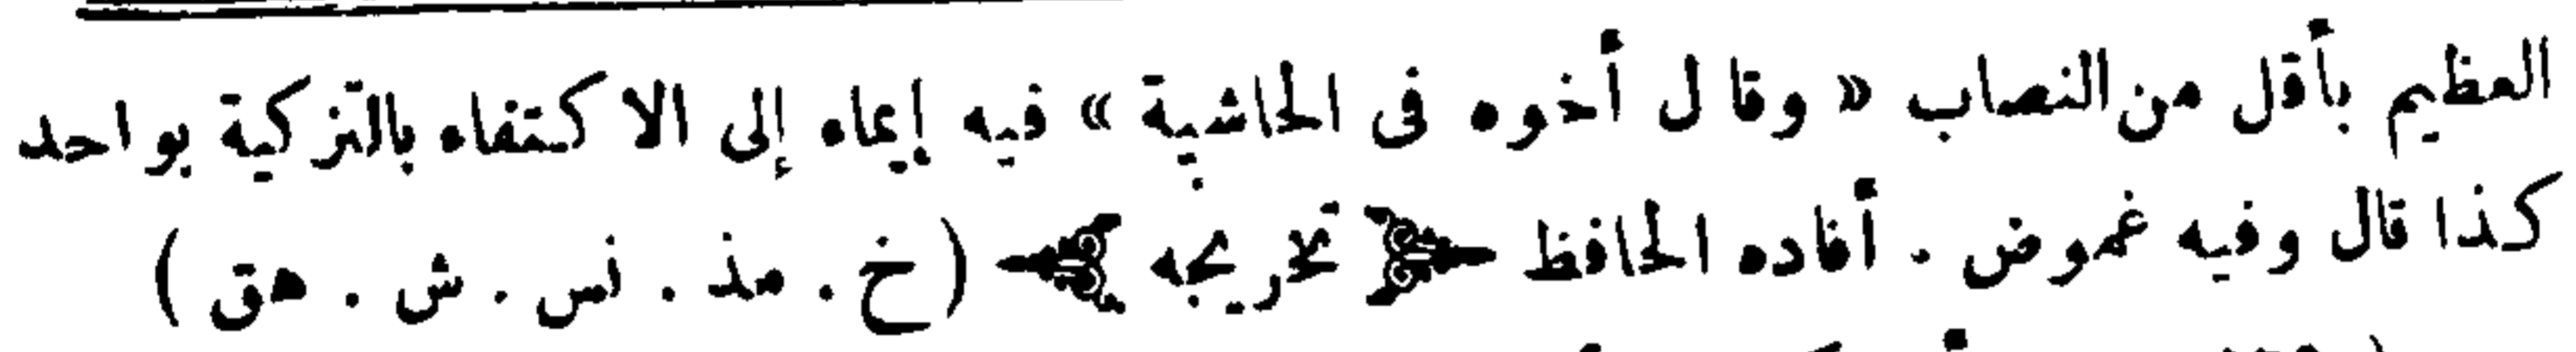 العظيم بأقل من النصاب « وقال أخوه فى الحاشية » فيه إيماء إلى الاكتفاء بالتزكية بواحد
كذا قال وفيه غموض . أفاده الحافظ تخريجه (خ . مذ . نس . ش . هق )